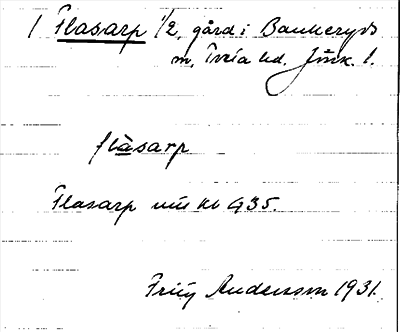 1 Flasarp 1/2, gård i Bankeryds
m, Tveta hd. Jönk. l.
flàsarp
Flasarp
G35.
Andersson 1931.